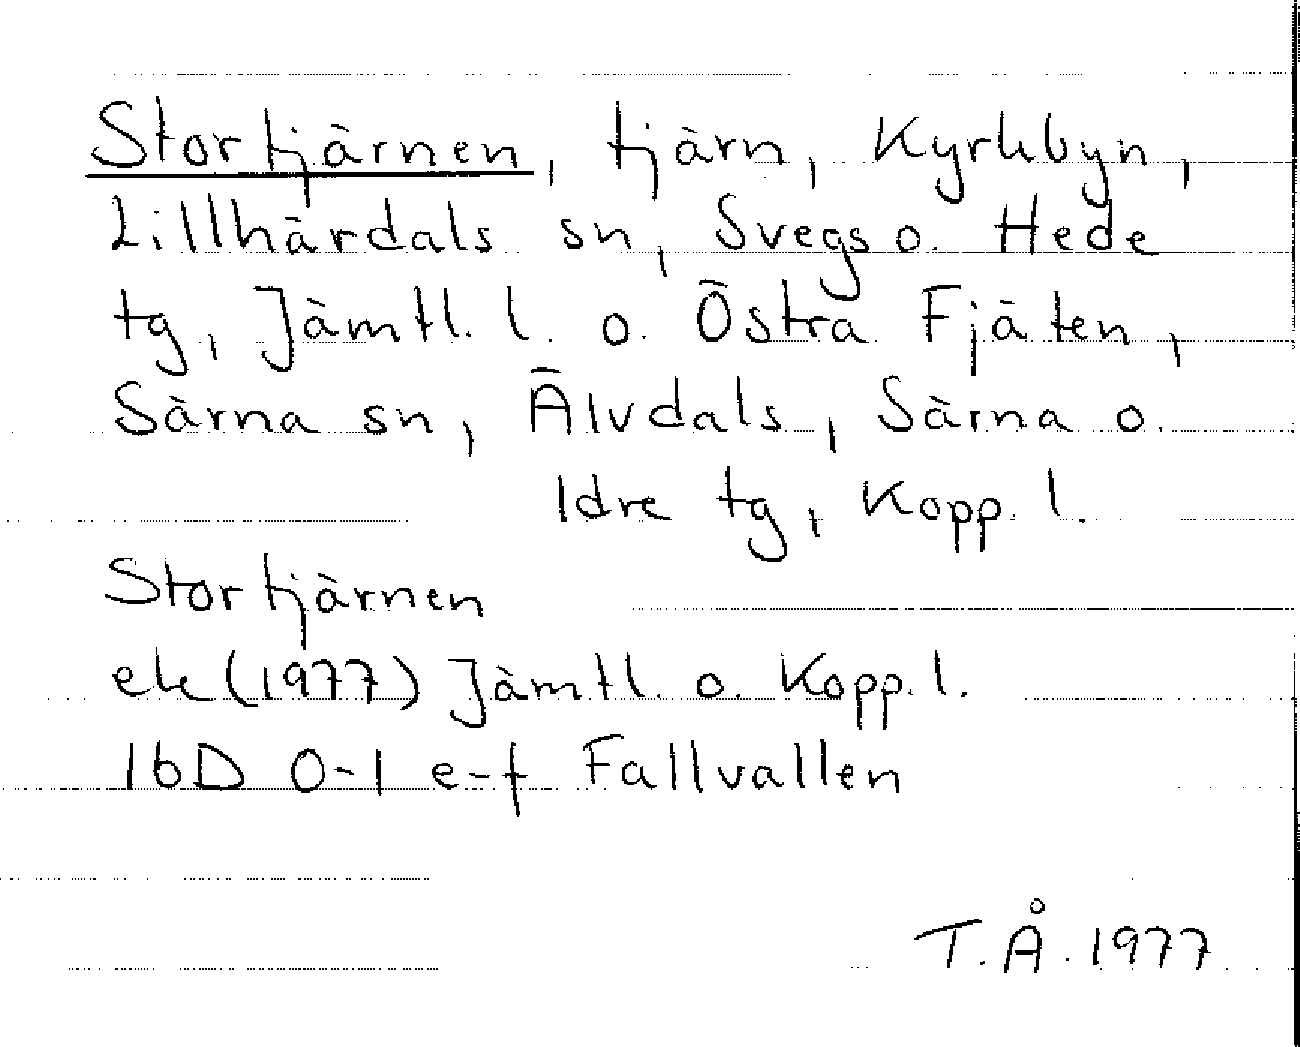 Stortjärnen, tjärn, Kyrkbyn,
Lillhärdals sn, Svegs o. Hede
tg, Jämtl. l. o. Östra Fjäten,
Särna sn, Älvdals, Särna o.
Idre tg, Kopp. l.
Stortjärnen
ek (1977) Jämtl. o. Kopp. l.
16D 0-1 e-f Fallvallen
T.Å. 1977